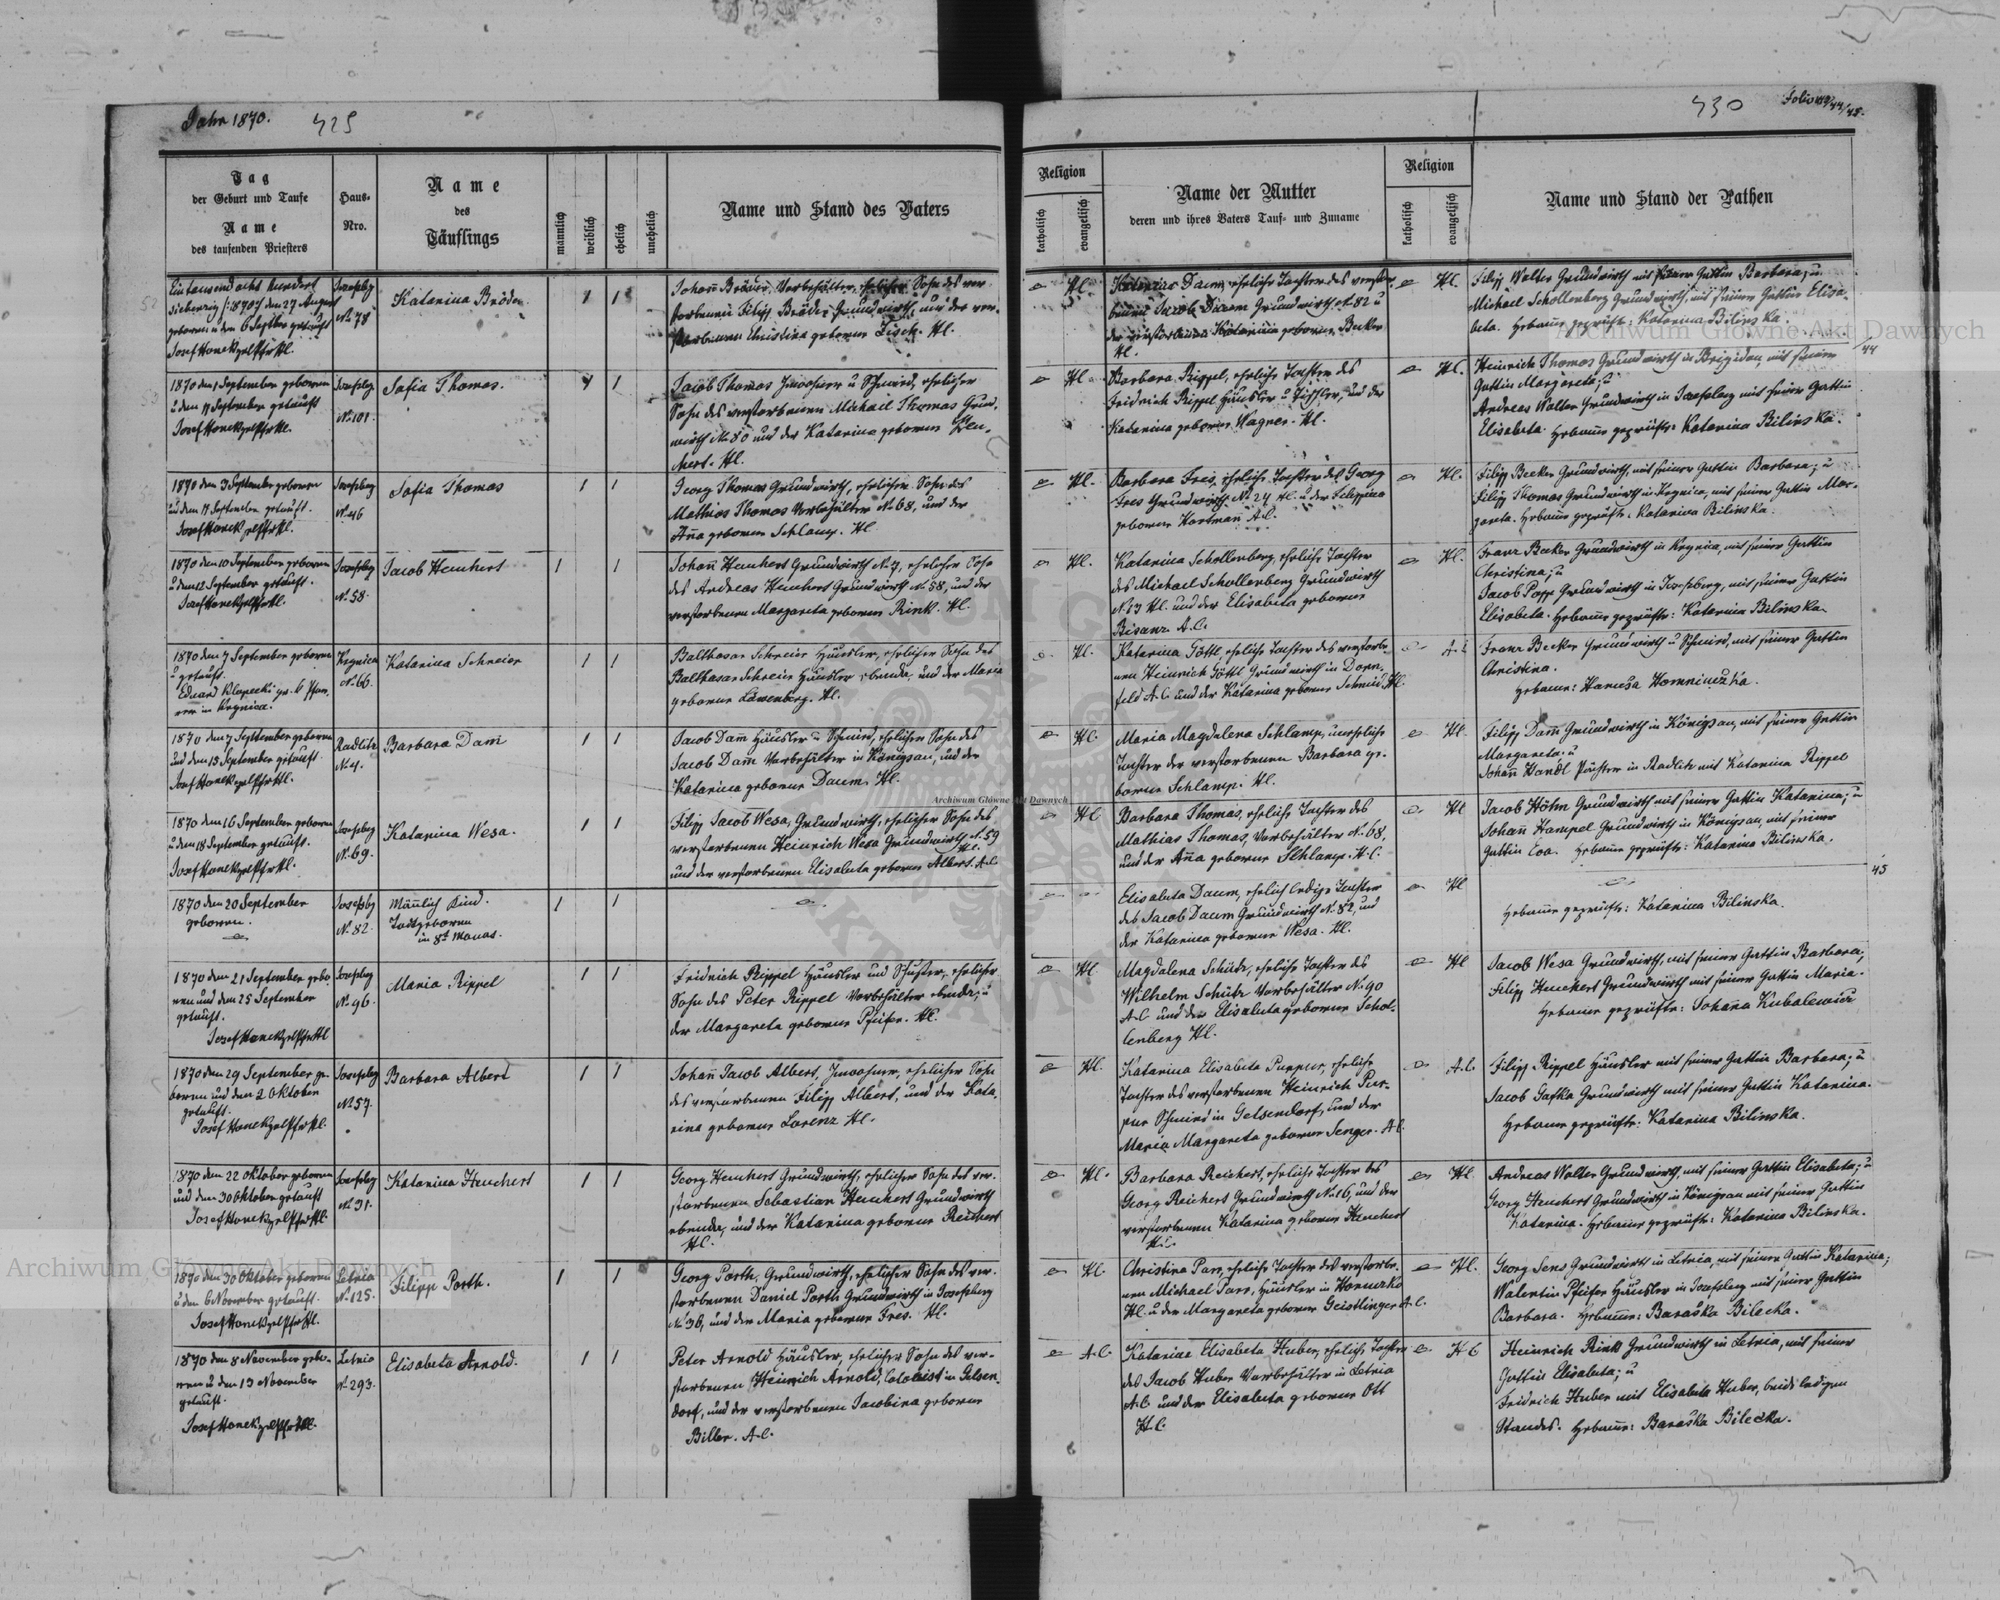 Jahr 1870.
425
430
Folio 43/44/45.
Tag
der Geburt und Taufe
Name
des taufenden Priesters
Haus-
Nro.
Name
des
Täuflings
männlich
weiblich
ehelich
unehelich
Name und Stand des Vaters
Religion
katholisch
evangelisch
Name der Mutter
deren und ihres Vaters Tauf- und Zuname
Religion
katholisch
evangelisch
Name und Stand der Pathen
Eintausend acht hundert
siebenzig /:1870:/ den 27 August
geboren u den 6 Septber getauft
Josef Hanek
Josefsbg
No 78
Katarina Bröder
1
1
Johann Bröder, Vorbehälter, ehelicher Sohn des ver-
storbenen Filipp Bröder Grundwirth, und der ver-
storbenen Christina geborene Hl.
Hl.
Katarina Daum, eheliche Tochter des verstor-
benen Jacob Daum Grundwirth No 82 u
der verstorbenen Katarina geborene Becker
Hl.
Hl.
Filipp Walter Grundwirth mit seiner Gattin Barbara; u
Michael Schollenberg Grundwirth, mit seiner Gattin Elisa-
beta. Hebamme geprüfte: Katarina Bilinska.
1870 den 1 September geboren
u den 11 September getauft
Josef Hanek
Josefsbg
No 101
Sofia Thomas.
1
1
Jacob Thomas Inwohner u Schmied, ehelicher
Sohn des verstorbenen Michael Thomas Grund-
wirth No 80 und der Katarina geborene Hen-
chert. Hl.
Hl
Barbara Rippel, eheliche Tochter des
Fridrich Rippel Häusler u Tischler, und der
Katarina geborene Wagner. Hl.
Hl.
Heinrich Thomas Grundwirth in Brigidau, mit seiner
Gattin Margareta; u
Andreas Walter Grundwirth in Josefsberg mit seiner Gattin
Elisabeta. Hebamme geprüfte: Katarina Bilinska.
44
1870 den 3 September geboren
und den 11 September getauft.
Josef Hanek
Josefsberg
No 46
Sofia Thomas
1
1
Georg Thomas Grundwirth, ehelicher Sohn des
Mathias Thomas Vorbehälter No 68, und der
Anna geborene Schlamp. Hl
Hl.
Barbara Fres, eheliche Tochter des Georg
Fres Grundwirth No 24 Hl. u der Filippina
geborene Hartmann A.C.
Hl.
Filipp Becker Grundwirth, mit seiner Gattin Barbara; u
Filipp Thomas Grundwirth in Kzynica, mit seiner Gattin Mar-
gareta. Hebamme geprüfte: Katarina Bilinska.
1870 den 10 September geboren
u den 12 September getauft.
Josef Hanek
Josefsbg
No 58.
Jacob Henchert
1
1
Johann Henchert Grundwirth No 7, ehelicher Sohn
des Andreas Henchert Grundwirth No 58, und der
verstorbenen Margareta geborene Rink. Hl.
Hl.
Katarina Schollenberg, eheliche Tochter
des Michael Schollenberg Grundwirth
No 13 Hl. und der Elisabeta geborene
Bisanz. A.C.
Hl.
Franz Becker Grundwirth in Kzynica, mit seiner Gattin
Christina; u
Jacob Popp Grundwirth in Josefsberg, mit seiner Gattin
Elisabeta. Hebamme geprüfte: Katarina Bilinska
1870 den 7 September geboren
u getauft.
Eduard Klopecki gr. k Pfar-
rer in Kzynica.
Kzynica
No 66.
Katarina Schreier
1
1
Balthasar Schreier Häusler, ehelicher Sohn des
Balthasar Schreier Häusler ebenda, und der Maria
geborene Löwenberg. Hl.
Hl.
Katarina Göttl eheliche Tochter des verstorbe-
nen Heinrich Göttl Grundwirth in Dorn-
feld A.C. und der Katarina geborene Schmid Hl.
A.C
Franz Becker Grundwirth u Schmied, mit seiner Gattin
Christina.
Hebamme: Hanuśa Homniuczka.
1870 den 7 September geboren
und den 13 September getauft
Josef Hanek
Radlitz
No 4.
Barbara Dam
1
1
Jacob Dam Häusler u Schmied, ehelicher Sohn des
Jacob Dam Vorbehälter in Königsau, und der
Katarina geborene Daum. Hl.
Hl.
Maria Magdalena Schlamp, uneheliche
Tochter der verstorbenen Barbara ge-
borene Schlamp. Hl.
Hl.
Filipp Dam Grundwirth in Königsau, mit seiner Gattin
Margareta; u
Johann Handl Pächter in Radlitz mit Katarina Rippel
1870 den 16 September geboren
u den 18 September getauft.
Josef Hanek
Josefsbg
No 69.
Katarina Wesa.
1
1
Filipp Jacob Wesa, Grundwirth, ehelicher Sohn des
verstorbenen Heinrich Wesa Grundwirth No 59
Hl.
und der verstorbenen Elisabeta geborene Albert. A.C.
Hl
Barbara Thomas, eheliche Tochter des
Mathias Thomas, Vorbehälter No 68,
und der Anna geborene Schlamp. H.C.
Hl
Jacob Höhn Grundwirth mit seiner Gattin Katarina; u
Johann Hampel Grundwirth in Königsau, mit seiner
Gattin Eva. Hebamme geprüfte: Katarina Bilinska.
45
1870 den 20 September
geboren.
Josefsbg
No 82.
Männlich Kind.
Todtgeboren
im 8t Monat.
1
1
Elisabeta Daum, ehelich ledige Tochter
des Jacob Daum Grundwirth No 82, und
der Katarina geborene Wesa. Hl.
Hl
Hebamme geprüfte: Katarina Bilinska.
1870 den 21 September gebo-
ren und den 25 September
getauft.
Josef Hanek
Josefsbg
No 96.
Maria Rippel
1
1
Fridrich Rippel Häusler und Schuster, ehelicher
Sohn des Peter Rippel Vorbehälter ebenda; u
der Margareta geborene Pfeifer. Hl.
Hl.
Magdalena Schütz, eheliche Tochter des
Wilhelm Schütz Vorbehälter No 90
A.C. und der Elisabeta geborene Schol-
lenberg Hl.
Hl
Jacob Wesa Grundwirth, mit seiner Gattin Barbara;
Filipp Henchert Grundwirth mit seiner Gattin Maria.
Hebamme geprüfte: Johanna Kubalewicz
1870 den 29 September ge-
boren und den 2 Oktober
getauft.
Josef Hanek
Josefsbg
No 57.
Barbara Albert
1
1
Johann Jacob Albert, Inwohner, ehelicher Sohn
des verstorbenen Filipp Albert, und der Kata-
rina geborene Lorenz Hl.
Hl.
Katarina Elisabeta Purpur, eheliche
Tochter des verstorbenen Heinrich Pur-
pur Schmied in Gelsendorf, und der
Maria Margareta geborene Senger. A.C.
A.C.
Filipp Rippel Häusler mit seiner Gattin Barbara; u
Jacob Gafka Grundwirth mit seiner Gattin Katarina.
Hebamme geprüfte: Katarina Bilinska.
1870 den 22 Oktober geboren
und den 30 Oktober getauft
Josef Hanek
Josefsbg
No 31.
Katarina Henchert
1
1
Georg Henchert Grundwirth, ehelicher Sohn des ver-
storbenen Sebastian Henchert Grundwirth
ebenda, und der Katarina geborene Reichert
Hl.
Hl.
Barbara Reichert, eheliche Tochter des
Georg Reichert Grundwirth No 16, und der
verstorbenen Katarina geborene Henchert
Hl.
Hl.
Andreas Walter Grundwirth, mit seiner Gattin Elisabeta; u
Georg Henchert Grundwirth in Königsau mit seiner Gattin
Katarina. Hebamme geprüfte: Katarina Bilinska.
1870 den 30 Oktober geboren
u den 6 November getauft.
Josef Hanek
Letnia
No 125.
Filipp Porth.
1
1
Georg Porth, Grundwirth, ehelicher Sohn des ver-
storbenen Daniel Porth Grundwirth in Josefsberg
No 36, und der Maria geborene Fres. Hl.
Hl
Christina Parr, eheliche Tochter des verstorbe-
nen Michael Parr, Häusler in Horuczko
Hl. u der Margareta geborene Geistlinger A.C.
Hl.
Georg Sens Grundwirth in Letnia, mit seiner Gattin Katarina;
Walentin Pfeifer Häusler in Josefsberg mit seiner Gattin
Barbara. Hebamme: Baraśka Bilecka.
1870 den 8 November gebo-
ren u den 13 November
getauft.
Josef Hanek
Letnia
No 293.
Elisabeta Arnold.
1
1
Peter Arnold Häusler, ehelicher Sohn des ver-
storbenen Heinrich Arnold, Colonist in Gelsen-
dorf, und der verstorbenen Jacobina geborene
Biller. A.C.
A.C.
Katarina Elisabeta Huber, eheliche Tochter
des Jacob Huber Vorbehälter in Letnia
A.C. und der Elisabeta geborene Ott
H.C.
H.C
Heinrich Rink Grundwirth in Letnia, mit seiner
Gattin Elisabeta; u
Fridrich Huber mit Elisabeta Huber, beide ledigen
Standes. Hebamme: Baraśka Bilecka.
Archiwum Główne Akt Dawnych
Archiwum Główne Akt Dawnych
Archiwum Główne Akt Dawnych